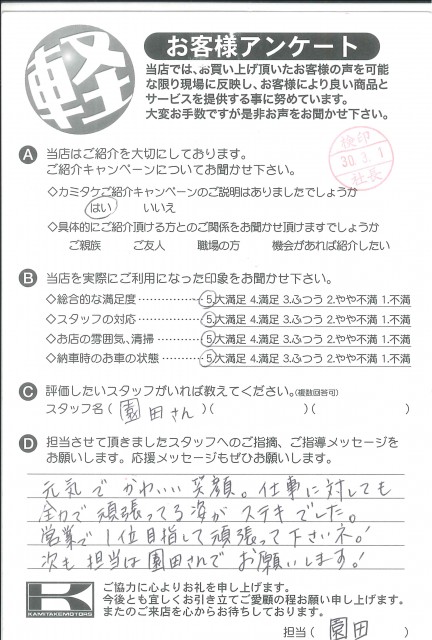 軽
お客様アンケート
当店では、お買い上げ頂いたお客様の声を可能
な限り現場に反映し、お客様により良い商品と
サービスを提供する事に努めています。
大変お手数ですが是非お声をお聞かせ下さい。
検印
30.3.1
社長
A 当店はご紹介を大切にしております。
ご紹介キャンペーンについてお聞かせ下さい。
◇カミタケご紹介キャンペーンのご説明はありましたでしょうか
はい いいえ
◇具体的にご紹介頂ける方とのご関係をお聞かせ頂けますでしょうか
ご親族 ご友人 職場の方 機会があれば紹介したい
B 当店を実際にご利用になった印象をお聞かせ下さい。
◇総合的な満足度……………… 5.大満足 4.満足 3.ふつう 2.やや不満 1.不満
◇スタッフの対応……………… 5.大満足 4.満足 3.ふつう 2.やや不満 1.不満
◇お店の雰囲気、清掃………… 5.大満足 4.満足 3.ふつう 2.やや不満 1.不満
◇納車時のお車の状態………… 5.大満足 4.満足 3.ふつう 2.やや不満 1.不満
C 評価したいスタッフがいれば教えてください。(複数回答可)
スタッフ名( 園田さん )( )( )
D 担当させて頂きましたスタッフへのご指摘、ご指導メッセージを
お願いします。応援メッセージもぜひお願いします。
元気で かわいい 笑顔。仕事に対しても
全力で 頑張ってる 姿が ステキでした。
営業で 1位目指して 頑張って 下さいネ!
次も 担当は 園田さんで お願いします!
K
KAMITAKEMOTORS
ご協力に心よりお礼を申し上げます。
今後とも宜しくお引き立てご愛顧の程お願い申し上げます。
またのご来店を心からお待ちしております。
担当( 園田 )